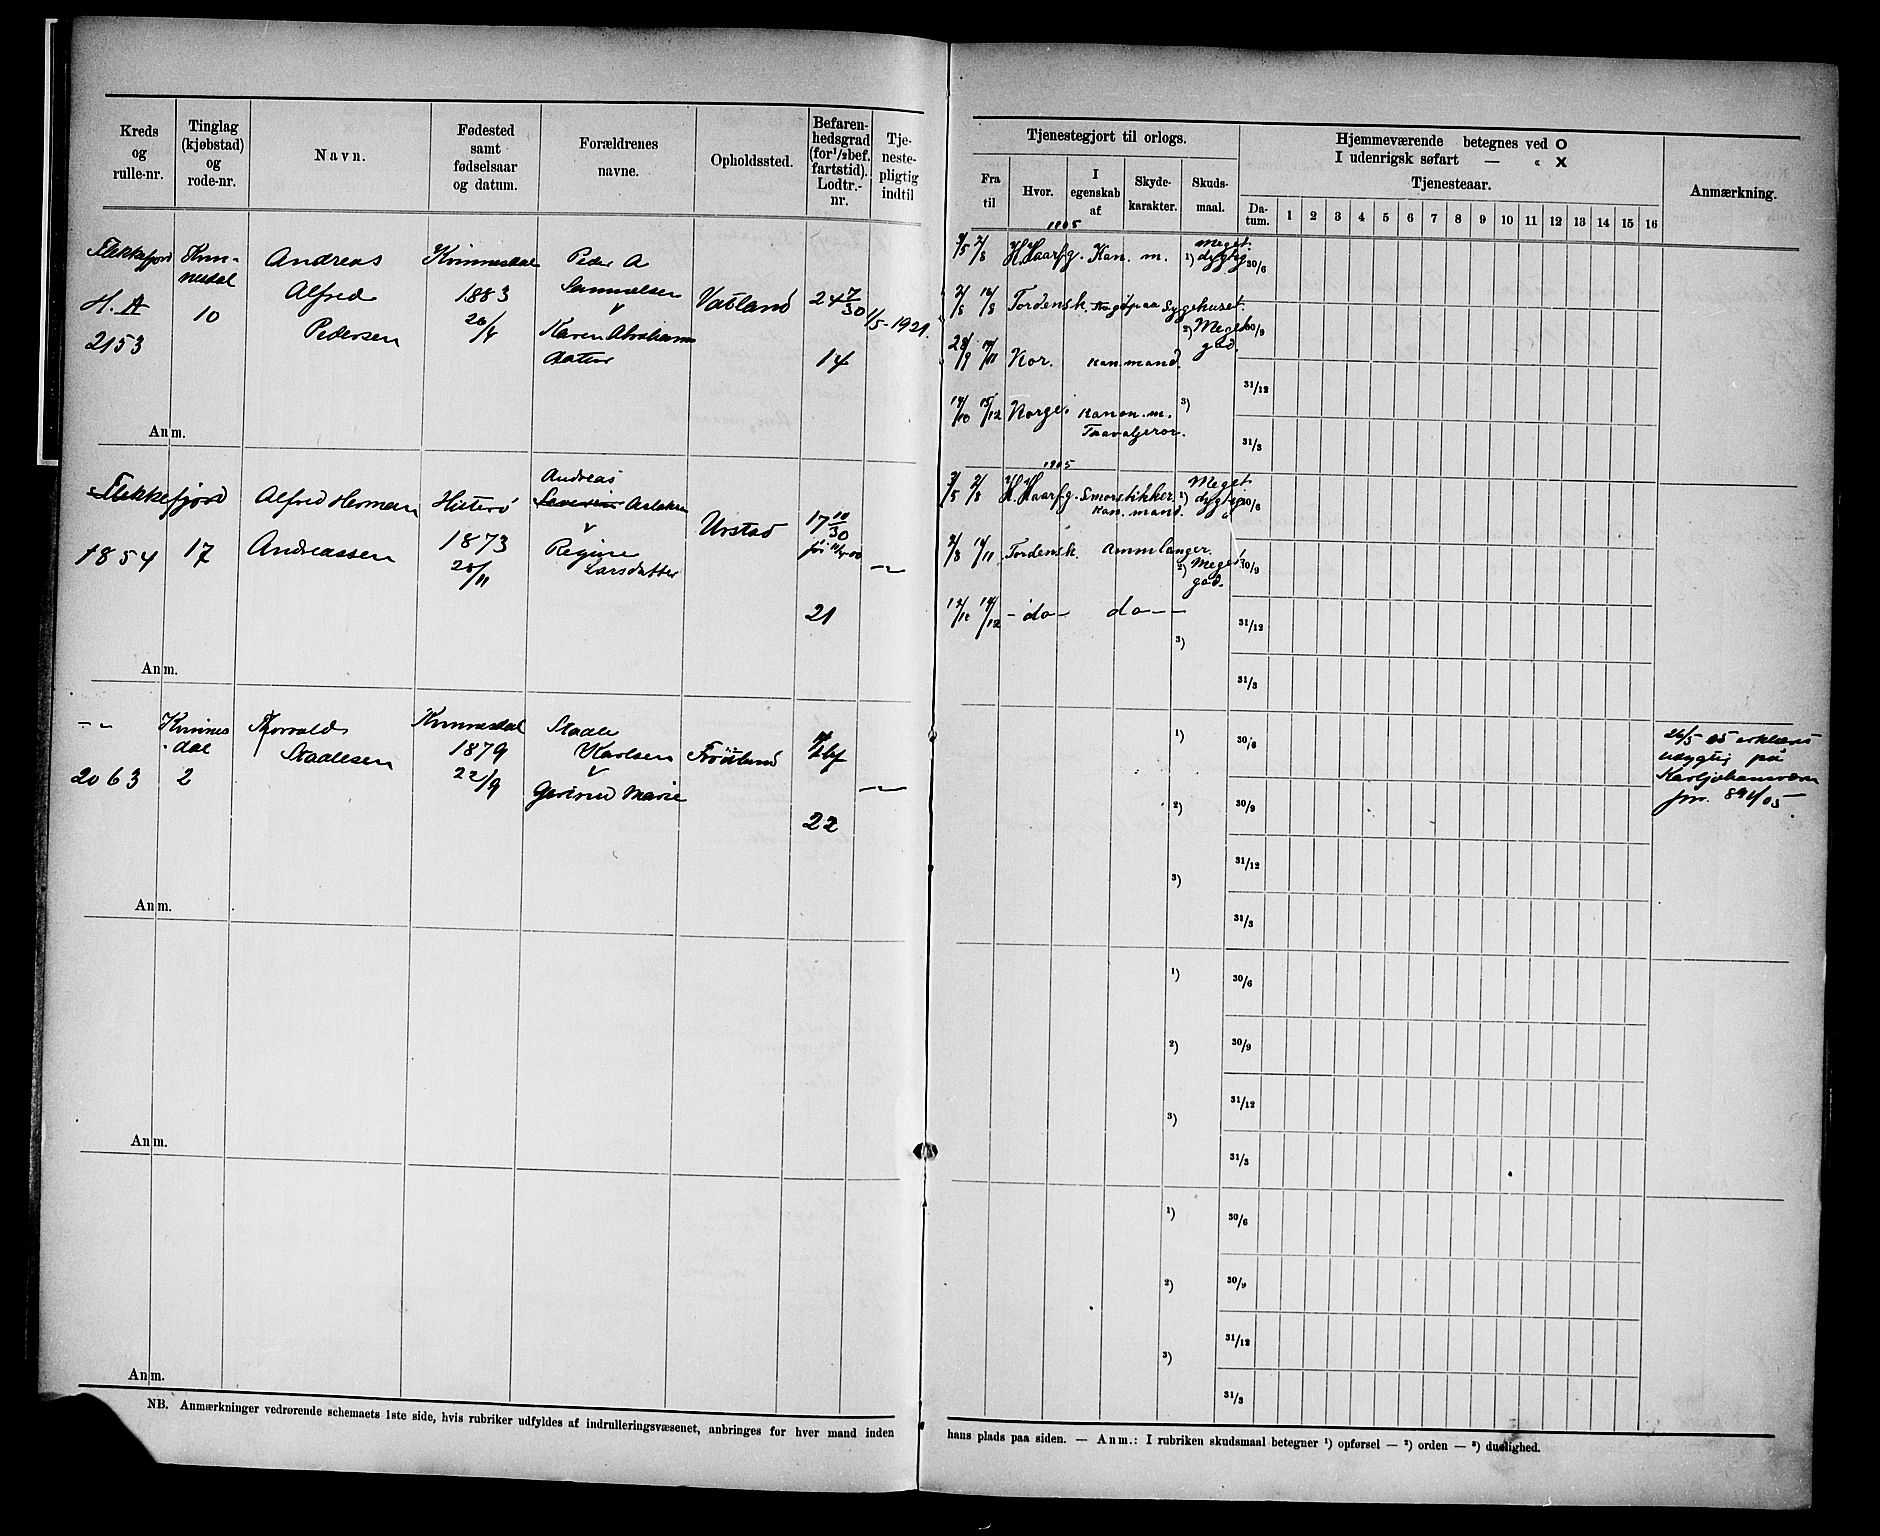 Kreds
og
rulle-nr.
Tinglag
(kjøbstad)
og
rode-nr.
Navn.
Fødested
samt
fødselsaar
og datum.
Forældrenes
navne.
Opholdssted.
Befaren-
hedsgrad
(for ¹/₅ bef.
fartstid).
Lodtr.-
nr.
Tje-
neste-
pligtig
indtil
Tjenestegjort til orlogs.
Fra
til
Hvor.
I
egenskab
af
Skyde-
karakter.
Skuds-
maal.
Hjemmeværende betegnes ved O
I udenrigsk søfart — « X
Tjenesteaar.
Da-
tum. 1 2 3 4 5 6 7 8 9 10 11 12 13 14 15 16
Anmærkning.
Flekkefjord
H. A
2153
10
Andreas
Alfred
Pedersen
Kvinnesdal
1883
20/4
Peder A
Samuelsen
v
Karen Abrahams
datter
Vatland
24 7/30
14
1/5-1921.
1905
2/8 H. Haarfg. Kan. m. 1) Meget
dygtig
2/8 16/8 Tordensk. paa Sygehuset.
2) Meget
god.
28/9 Nor. Kanmand.
14/10 15/12 Norge. Kanon. m. 3)
30/6
30/9
31/12
31/3
Anm.
Flekkefjord
1854
17
Alfred Herman
Andreassen
Hiterø
1873
20/11
Andreas
Severin Aslaksen
v
Regine
Larsdatter
Urstad
17 10/30
21
-"-
1905
2/8 H. Haarfg. Smørstikker. 1) Meget
Kan. mand. dygtig
2/8 Tordensk. Ammlanger.
2) Meget
god.
12/10 14/12 - do - do - -
3)
30/6
30/9
31/12
31/3
Anm.
-"-
2063
Kvinnes
dal
2
Thorvald
Staalesen
Kvinnesdal
1879
22/9
Staale
Karlsen
v
Gertrud Marie
Frøitland
22
-"-
1)
2)
3)
30/6
30/9
31/12
31/3
26/5 05 erklæres
udygtig på
Karljohansværn
jnr. 891/05
Anm.
1)
2)
3)
30/6
30/9
31/12
31/3
Anm.
1)
2)
3)
30/6
30/9
31/12
31/3
Anm.
NB. Anmærkninger vedrørende schemaets 1ste side, hvis rubriker udfyldes af indrulleringsvæsenet, anbringes for hver mand inden
hans plads paa siden. — Anm.: I rubriken skudsmaal betegner ¹) opførsel — ²) orden — ³) duelighed.